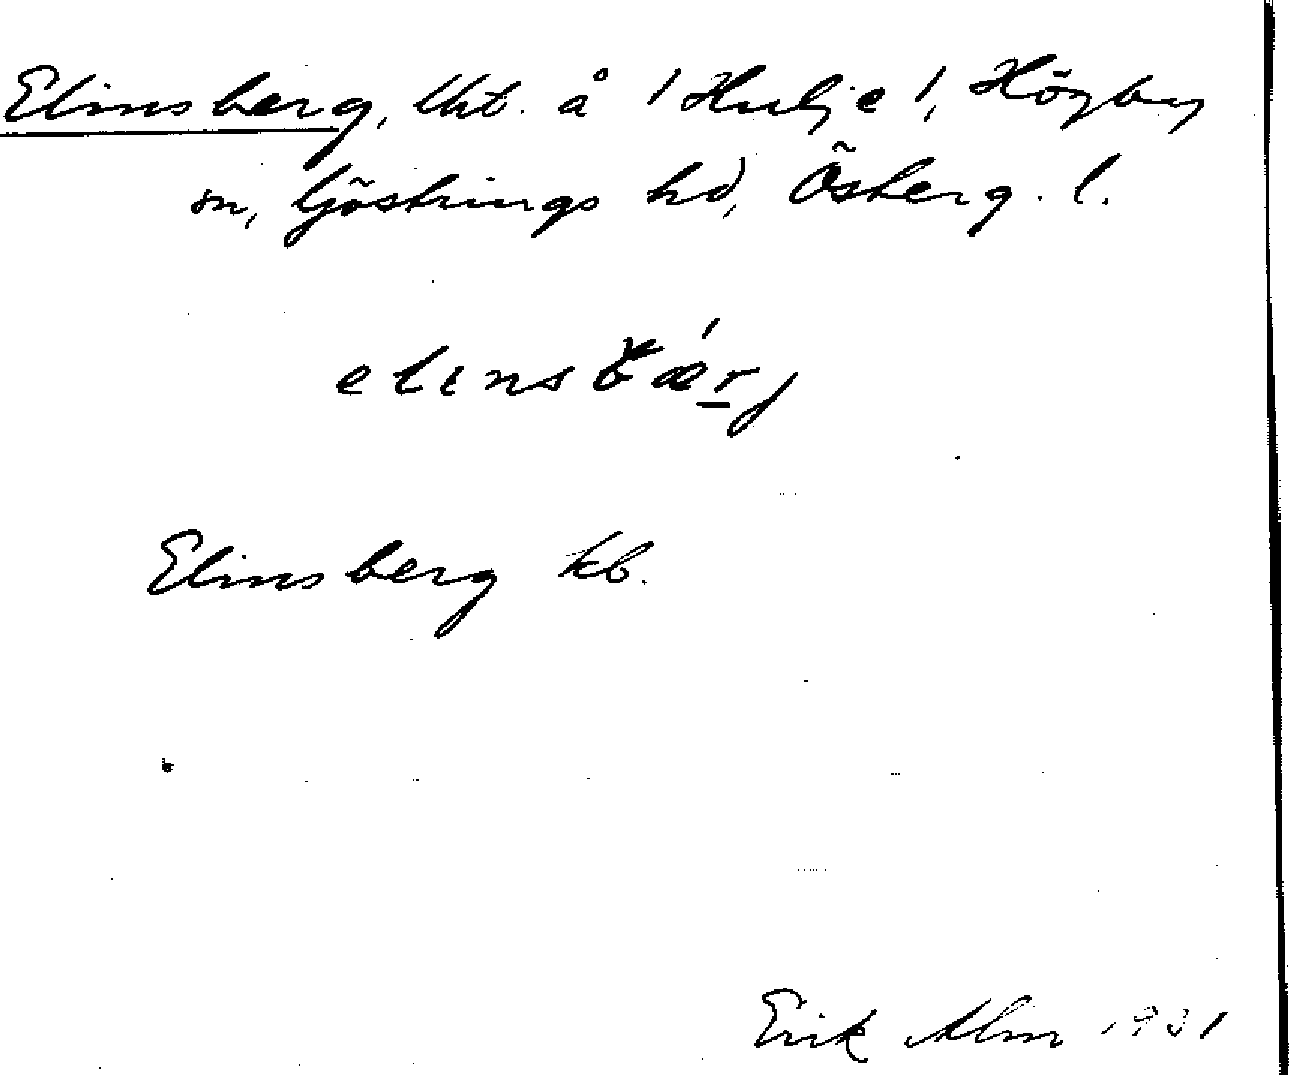 Elinsberg, lht. å /Hulje/, Högby
sn, Göstrings hd, Österg. l.
elinsbær̲j
Elinsberg kb.
Erik Alm 1931